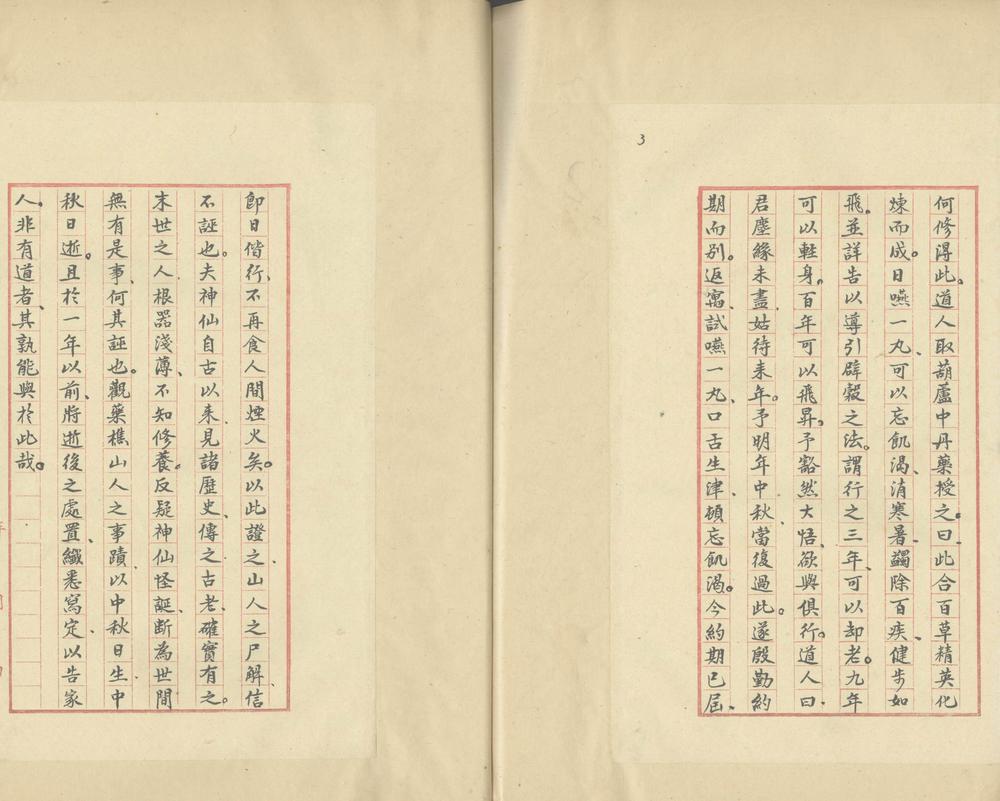 3
何修得此。道人取葫蘆中丹藥授之。曰、此合百草精英化
煉而成。日嚥一丸、可以忘飢渴、消寒暑、蠲除百疾、健步如
飛。並詳告以導引辟穀之法。謂行之三年、可以却老。九年
可以輕身。百年可以飛昇。予豁然大悟、欲與俱行。道人曰、
君塵緣未盡、姑待來年。予明年中秋、當復過此。遂殷勤約
期而別。返寓、試嚥一丸、口舌生津、頓忘飢渴。今約期已屆、
即日偕行、不再食人間煙火矣。以此證之、山人之尸解、信
不誣也。夫神仙自古以來、見諸歷史、傳之古老、確實有之。
末世之人、根器淺薄、不知修養。反疑神仙怪誕、斷為世間
無有是事、何其誣也。觀藥樵山人之事蹟、以中秋日生、中
秋日逝。且於一年以前、將逝後之處置、纖悉寫定、以告家
人。非有道者、其孰能與於此哉。